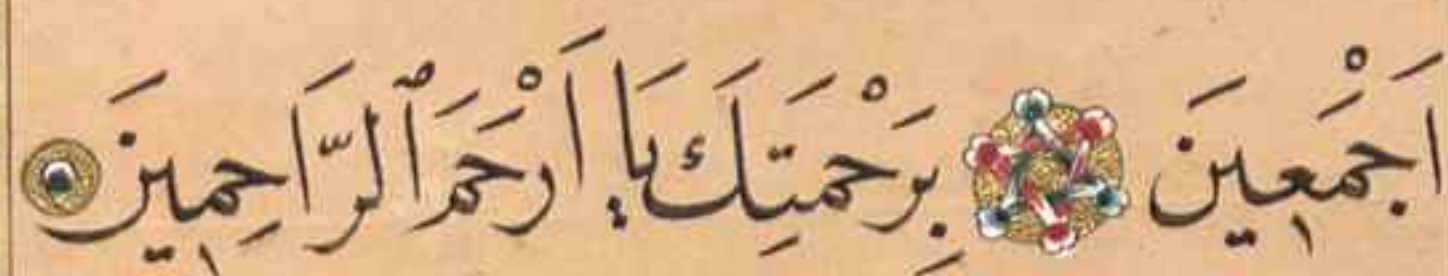 اَجْمَعِينَ بِرَحْمَتِكَ يَا اَرْحَمَ ٱلرَّاحِمِينَ